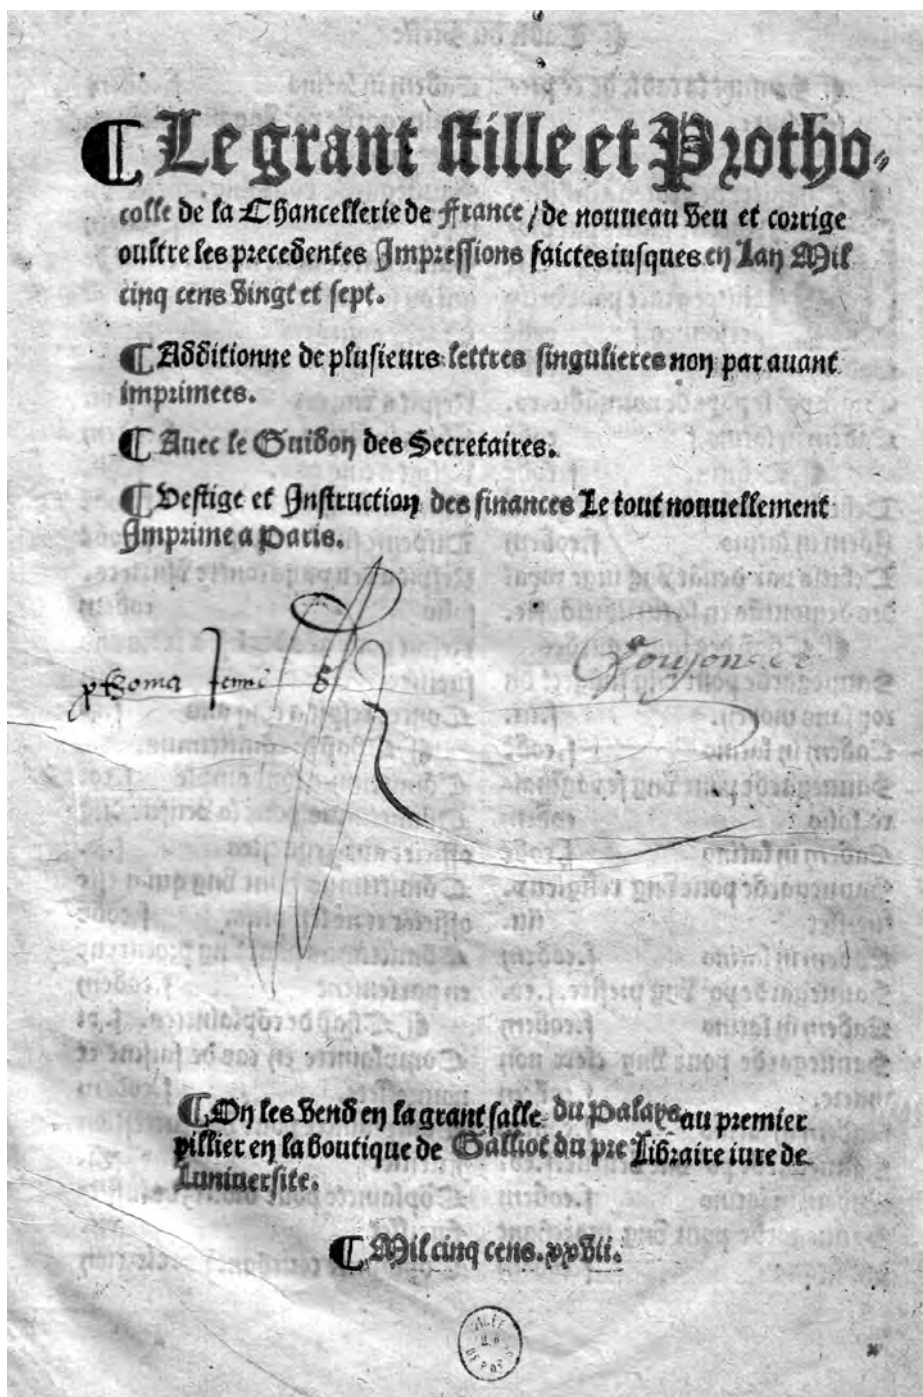 ¶ Le grant stille et Protho-
colle de la Chancellerie de France / de nouueau veu et corrige
oultre les precedentes Impressions faictes iusques en Lan Mil
cinq cens vingt et sept.
¶ Additionne de plusieurs lettres singulieres non par auant
imprimees.
¶ Auec le Guidon des Secretaires.
¶ Vestige et Instruction des finances Le tout nouuellement
Imprime a Paris.
¶ On les vend en la grant salle du Palays au premier
pillier en la boutique de Galliot du pre Libraire iure de
Luniuersite.
¶ Mil cinq cens. xxvii.